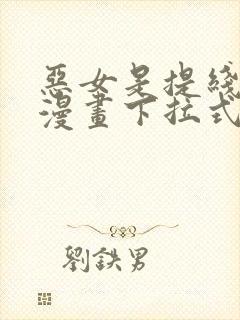 惡女是提綫
漫畫下拉式
劉鉄男